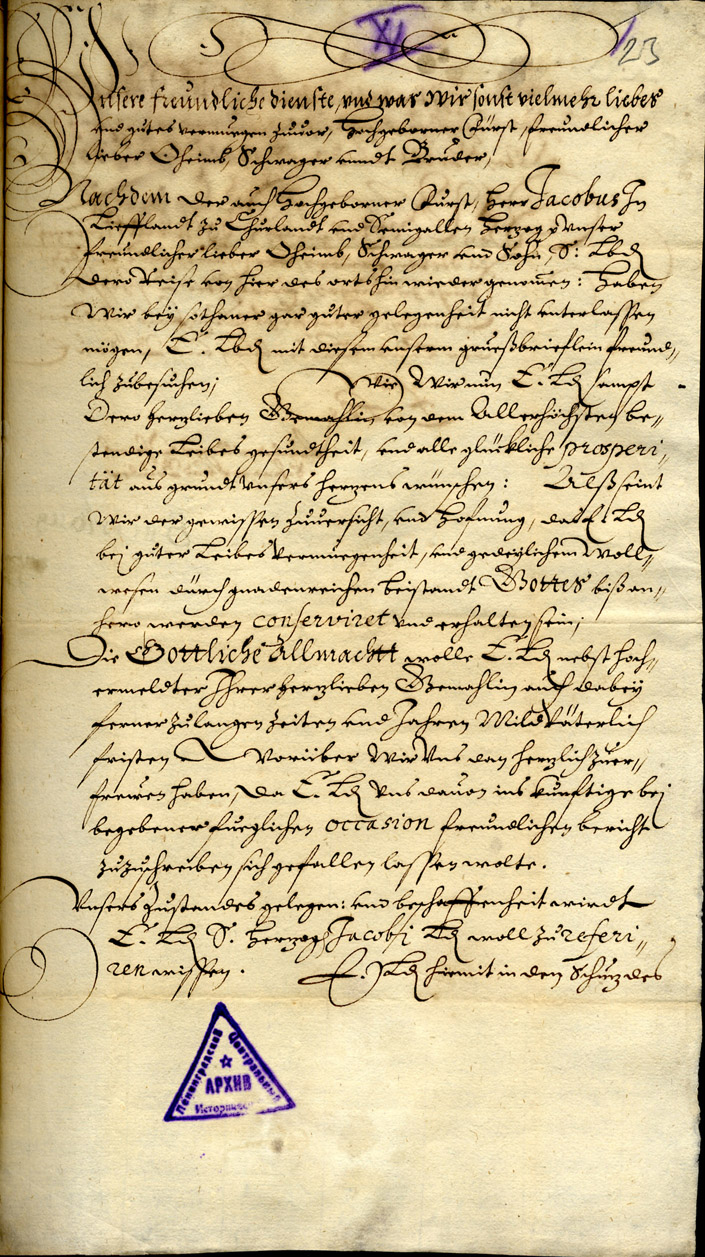 XI
23
Unsere freundliche dienste, und was Wir sonst vielmehr liebes
und gutes vermuegen zuvor, Hochgeborner Fürst, freundlicher
lieber Oheimb, Schwager unndt Bruder,
Nachdem der auch Hochgeborner Furst, Herr Jacobus In
Liefflandt zu Churlandt und Semigallen Herzog unser
freundlicher lieber Oheimb, Schwager und Sohn, S: Lbd
dero Reise von hier des orts hin wieder genommen: haben
Wir bey sothaner gar guter gelegenheit nicht unterlassen
mögen, E. Lbd mit diesem unserm grueßbrieflein freund„
lich zubesuchen; Wie Wir nun E. Ld sampt
Dero herzlieben Gemahlin von dem Allerhöchsten be„
stendige Leibes gesundtheit, und alle glückliche prosperi„
tät aus grundt unsers herzens wünschen: Alß seint
Wir der gewissen zuversicht, und Hofnung, daß E. Ld
bei guter Leibes Vermuegenheit, und gedeylichem Woll„
wesen durch gnadenreichen beistandt Gottes biß an„
hero werden conserviret und erhalten sein;
Die Göttliche Allmacht wolle E. Ld nebst hoch„
ermeldter Ihrer herzlieben Gemahlin auch dabey
ferner zu langen Zeiten und Jahren Mildväterlich
fristen Vorüber Wir Uns dan herzlich zuer„
frewen haben, Da E. Ld Uns davon ins künftige bei
begebener fueglichen occasion freundlichen bericht
zuzuschreiben sich gefallen lassen wolte.
Unsers Zustandes gelegen: und beschaffenheit wirdt
E. Ld S. Herzogs Jacobi Ld woll zu referi„
ren wissen. E. Ld hiemit in den Schuz des
Ленинградский Центральный
АРХИВ
Историч